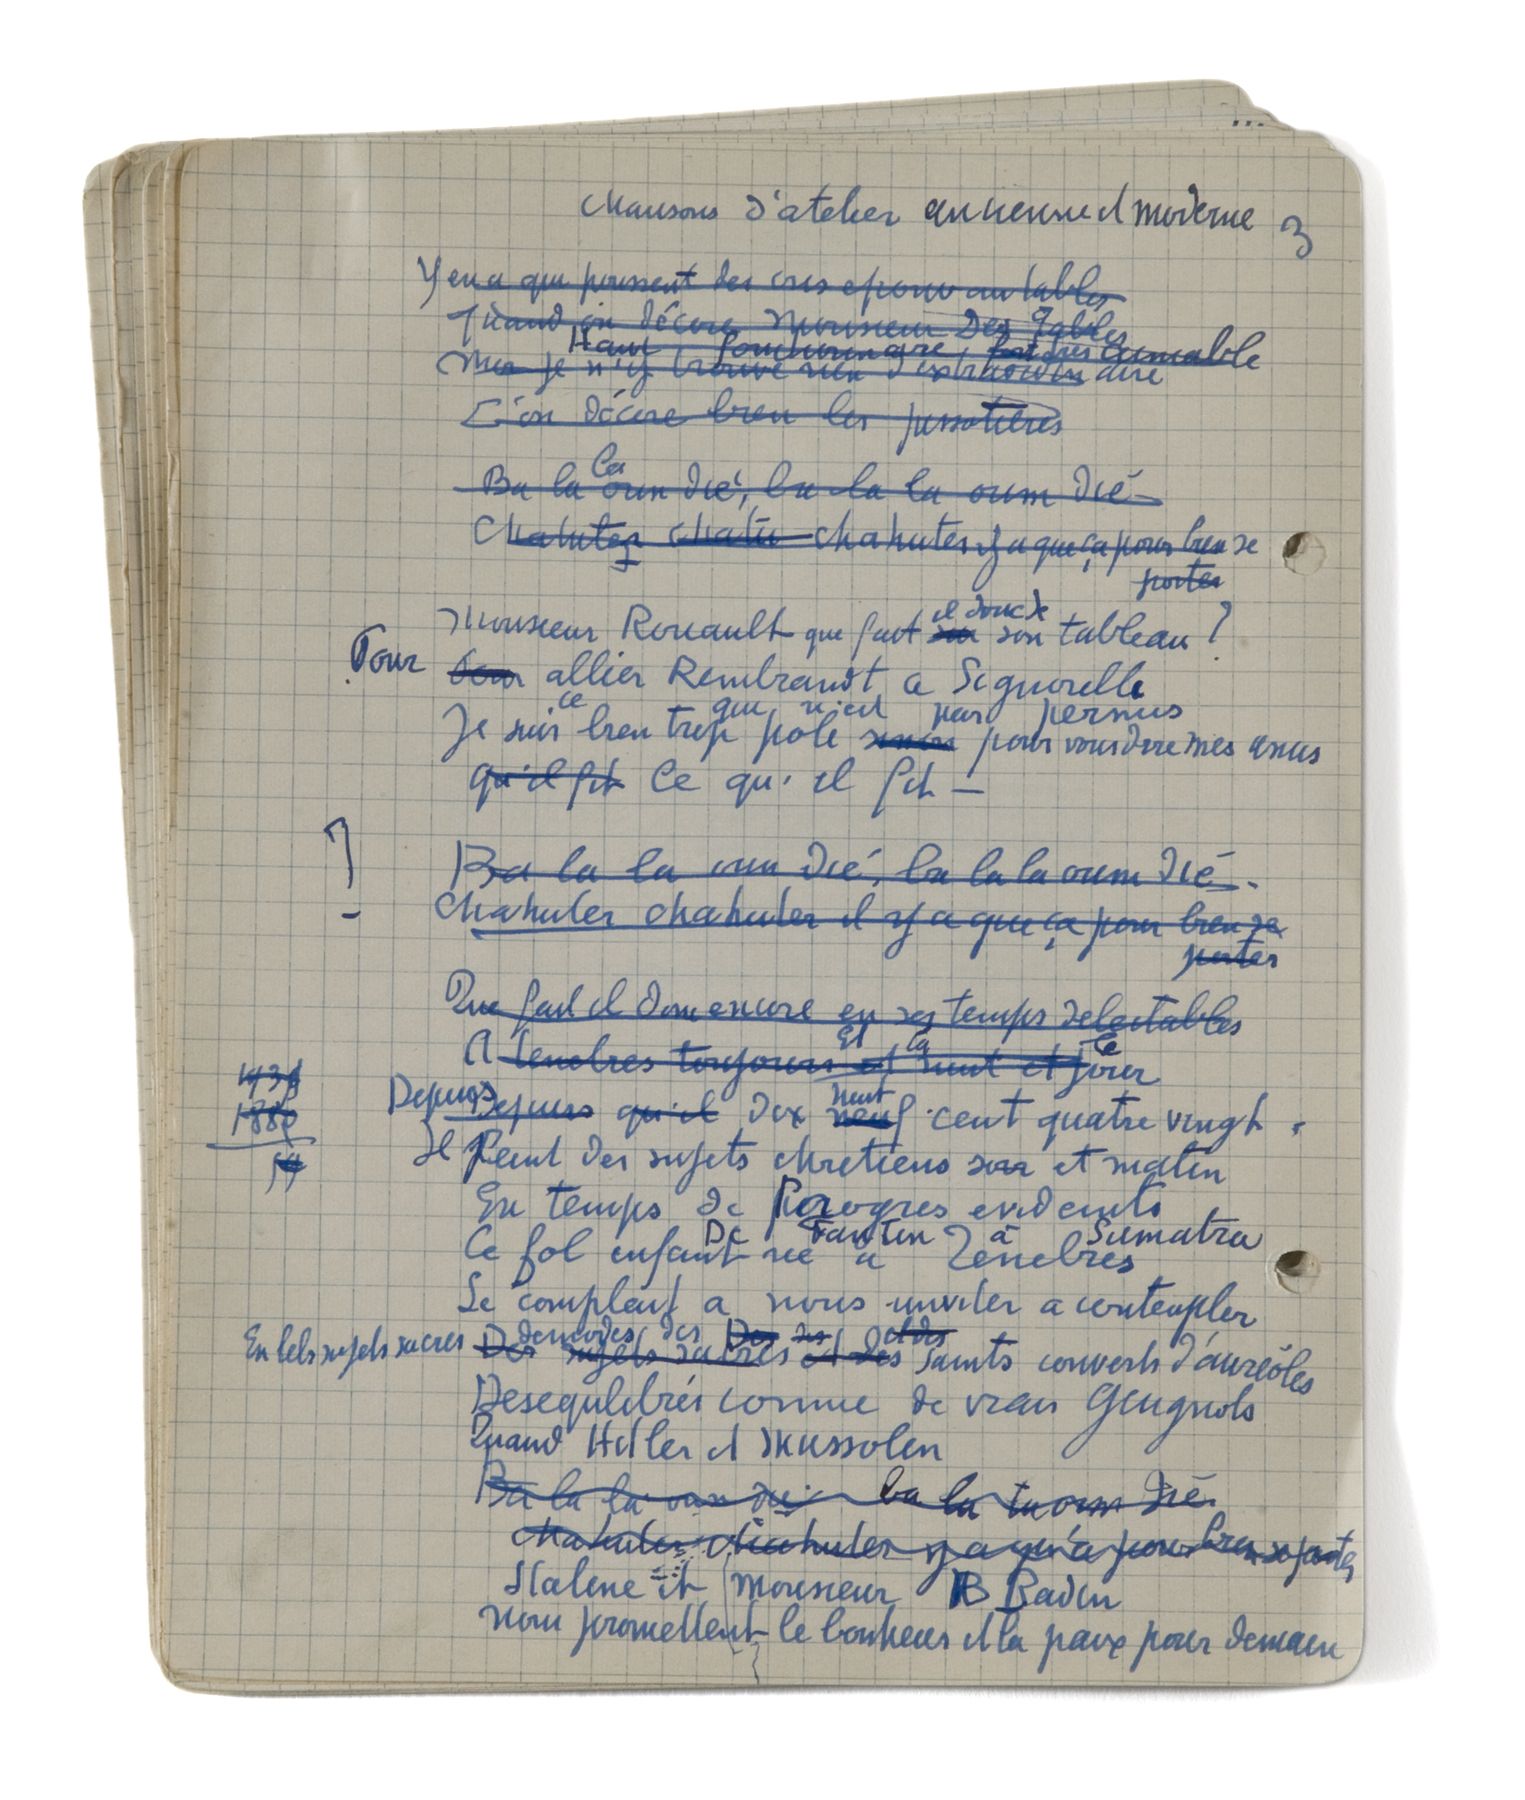 ...
Chansons d'atelier ancienne et moderne 3
Y en a qui poussent des cris epouvantables
Quand on décore Monsieur Des Tables
Haut fonctionnaire, fort aimable
Moi je n'y trouve rien d'extraordinaire
L'on décore bien les pissotieres
la
Ba la oum dié, ba la la oum dié
Chahutez chahu chahutez y a que ça pour bien se
porter
il donc
Monsieur Rouault que fait son tableau ?
Pour allier Rembrandt a Signorelli
ce que n'est pas permis
Je suis bien trop poli pour vous dire mes amis
qu'il fit Ce qu'il fit —
?
Ba la la oum dié, ba la la oum dié.
Chahuter chahuter il y a que ça pour bien se
porter
Que fait il donc encore en ses temps delectables
Et la le
A tenebres toujours et nuit et jour
1939
1880
Depuis Depuis qu'il dix neuf cent quatre vingt
huit
Il Peint des sujets chretiens soir et matin
En temps de Progres evidents
De Pantin à Sumatra
Ce fol enfant né a Tenebres
Se complait a nous inviter a contempler
demodes des Des
En tels sujets sacres Des sujets sacres et des saints couverts d'aureoles
Desequilibrés comme de vrais Guignols
Quand Hitler et Mussolin
Ba la la oum dié ba la la oum dié
Chahuter chahuter y a qu'a pour bien se porter
Staline et Monsieur B Badin
Nous promettent le bonheur et la paix pour demain